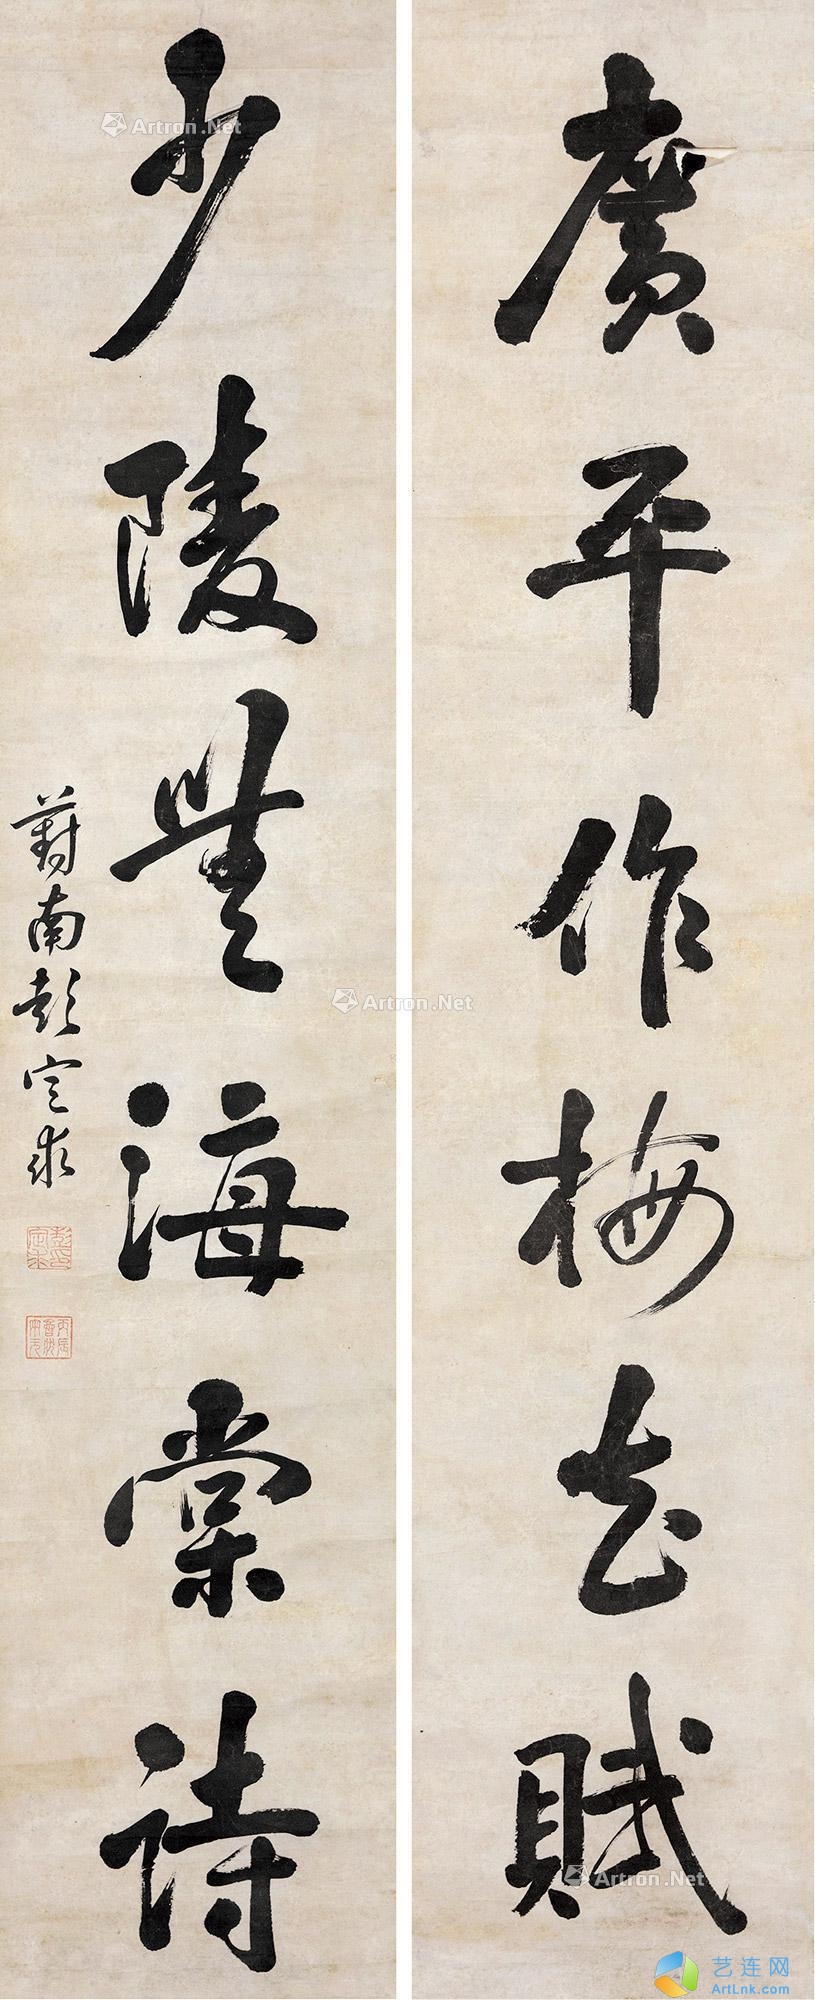 廣平作梅花賦
少陵無海棠詩
葑南彭定求
彭定求印
Artron.Net
Artron.Net
Artron.Net
艺连网
ArtLnk.com